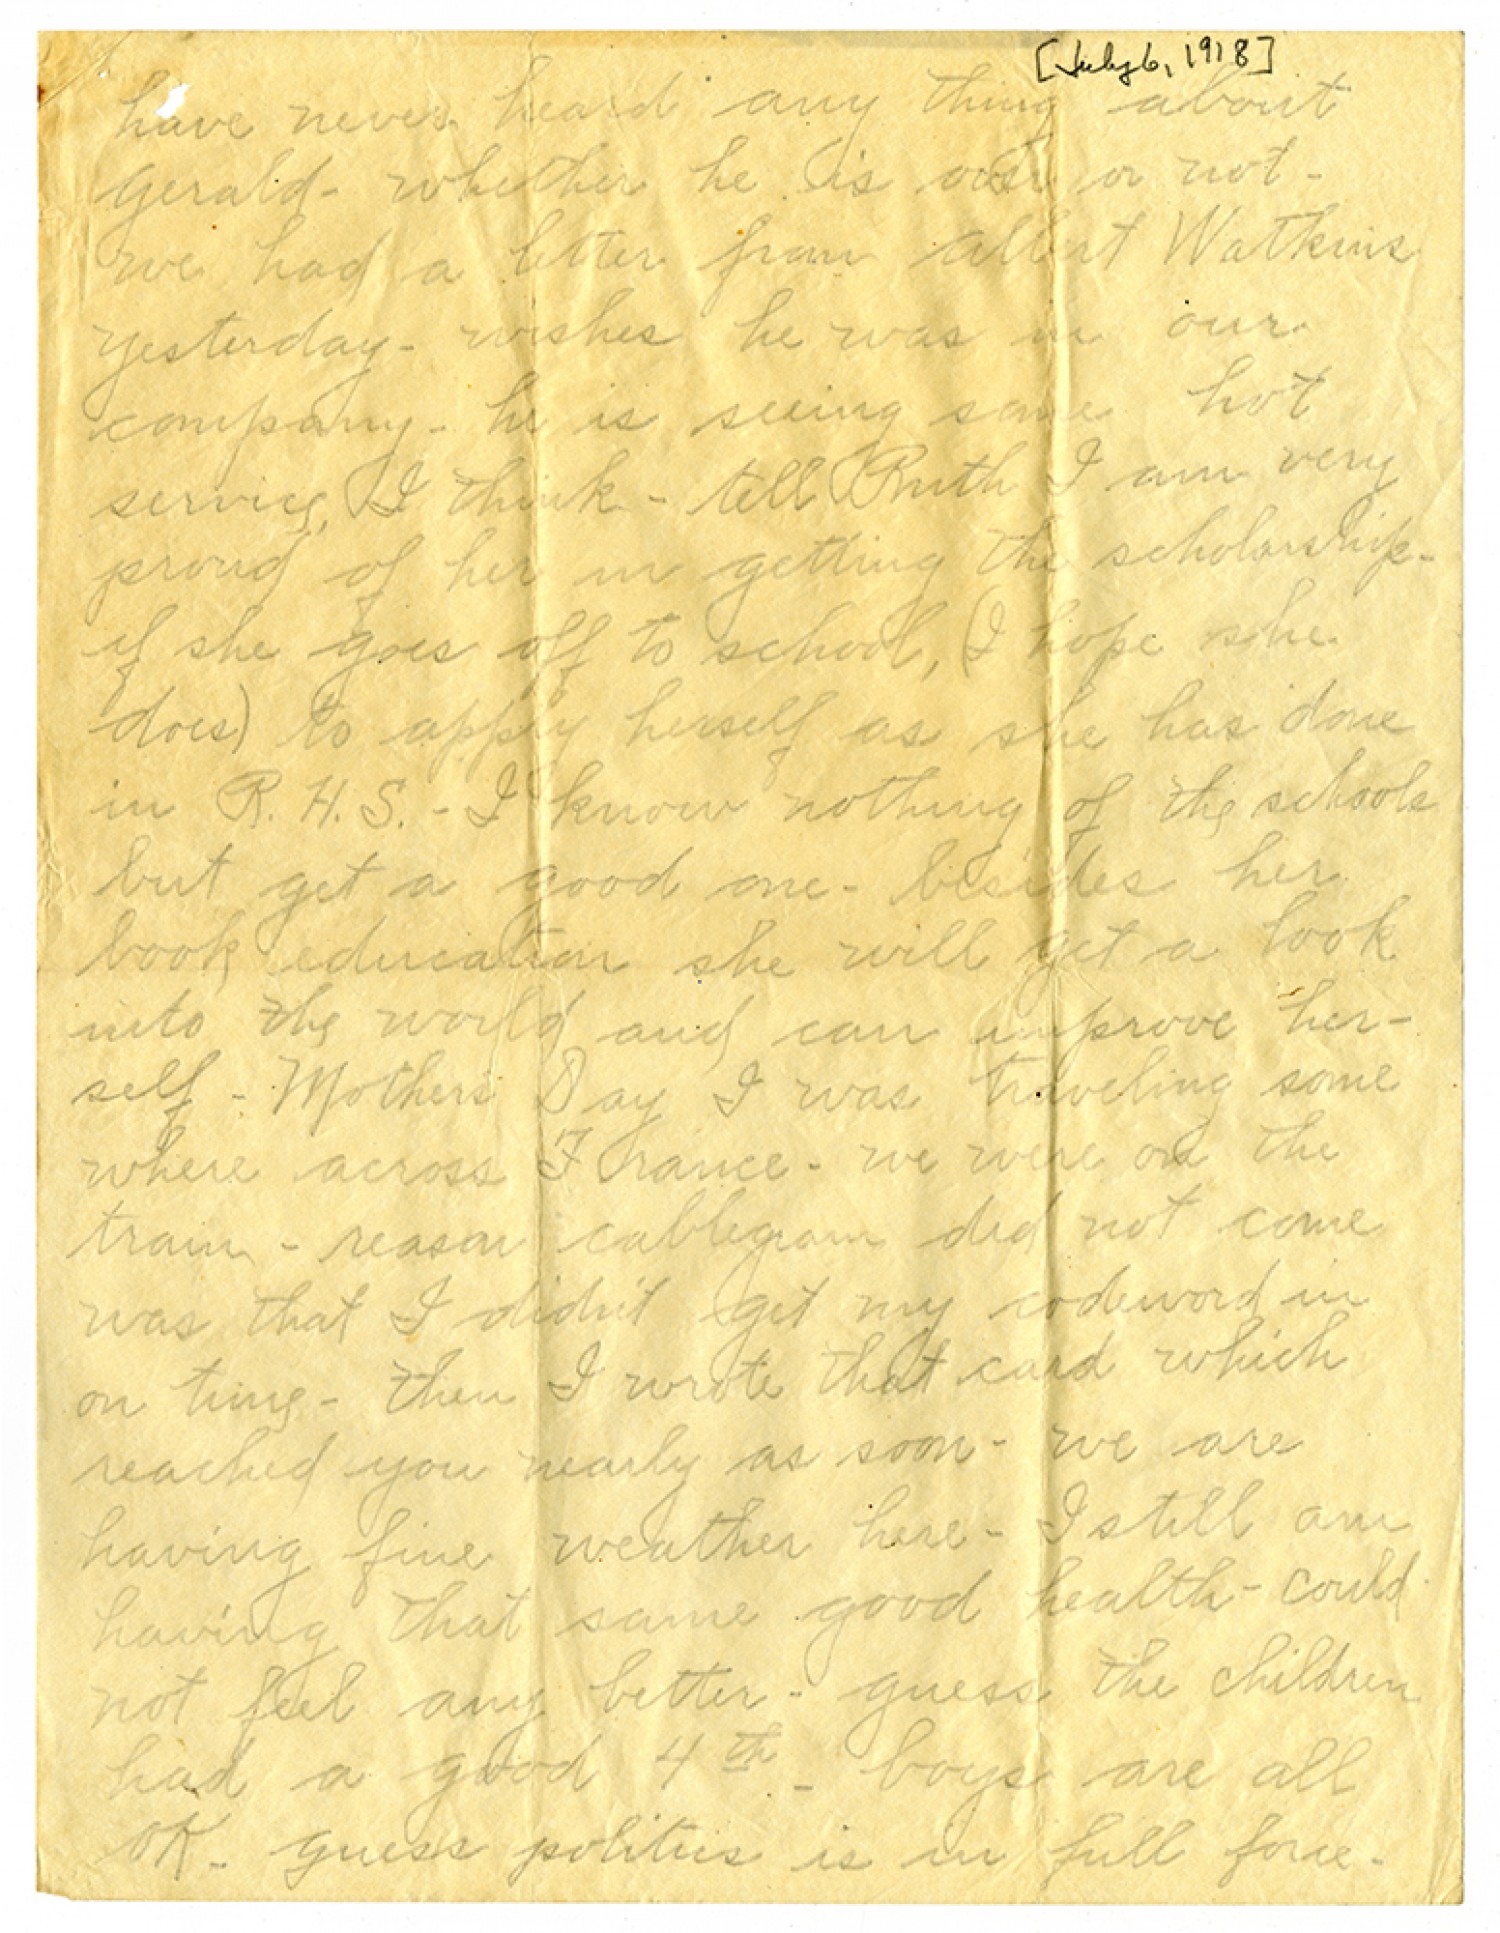 [July 6, 1918]
have never heard any thing about
Gerald - whether he is over or not -
we had a letter from Albert Watkins
yesterday - wishes he was in our
company - he is seeing some hot
service, I think - tell Ruth I am very
proud of her in getting the scholarship -
if she goes off to school, (I hope she
does) to apply herself as she has done
in R. H. S. - I know nothing of the schools
but get a good one - besides her
book education she will get a look
into the world and can improve her-
self - Mothers Day I was traveling some
where across France - we were on the
train - reason cablegram did not come
was that I didn't get my codeword in
on time - then I wrote that card which
reached you nearly as soon - we are
having fine weather here - I still am
having that same good health - could
not feel any better - guess the children
had a good 4th - boys are all
OK - guess politics is in full force -